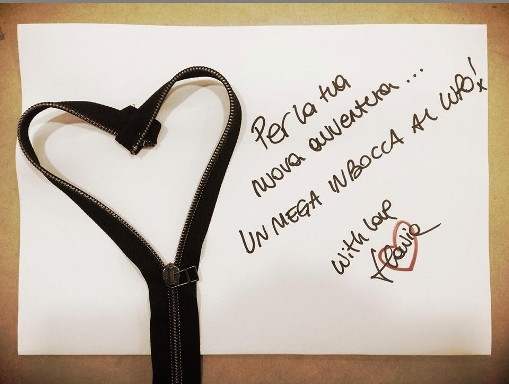 Per la tua
nuova avventura...
UN MEGA INBOCCA AL LUPO!
with love
Flavia